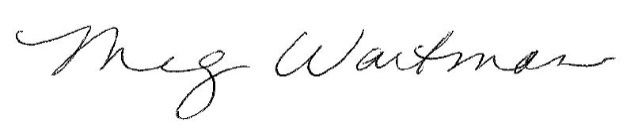 Meg Wartman